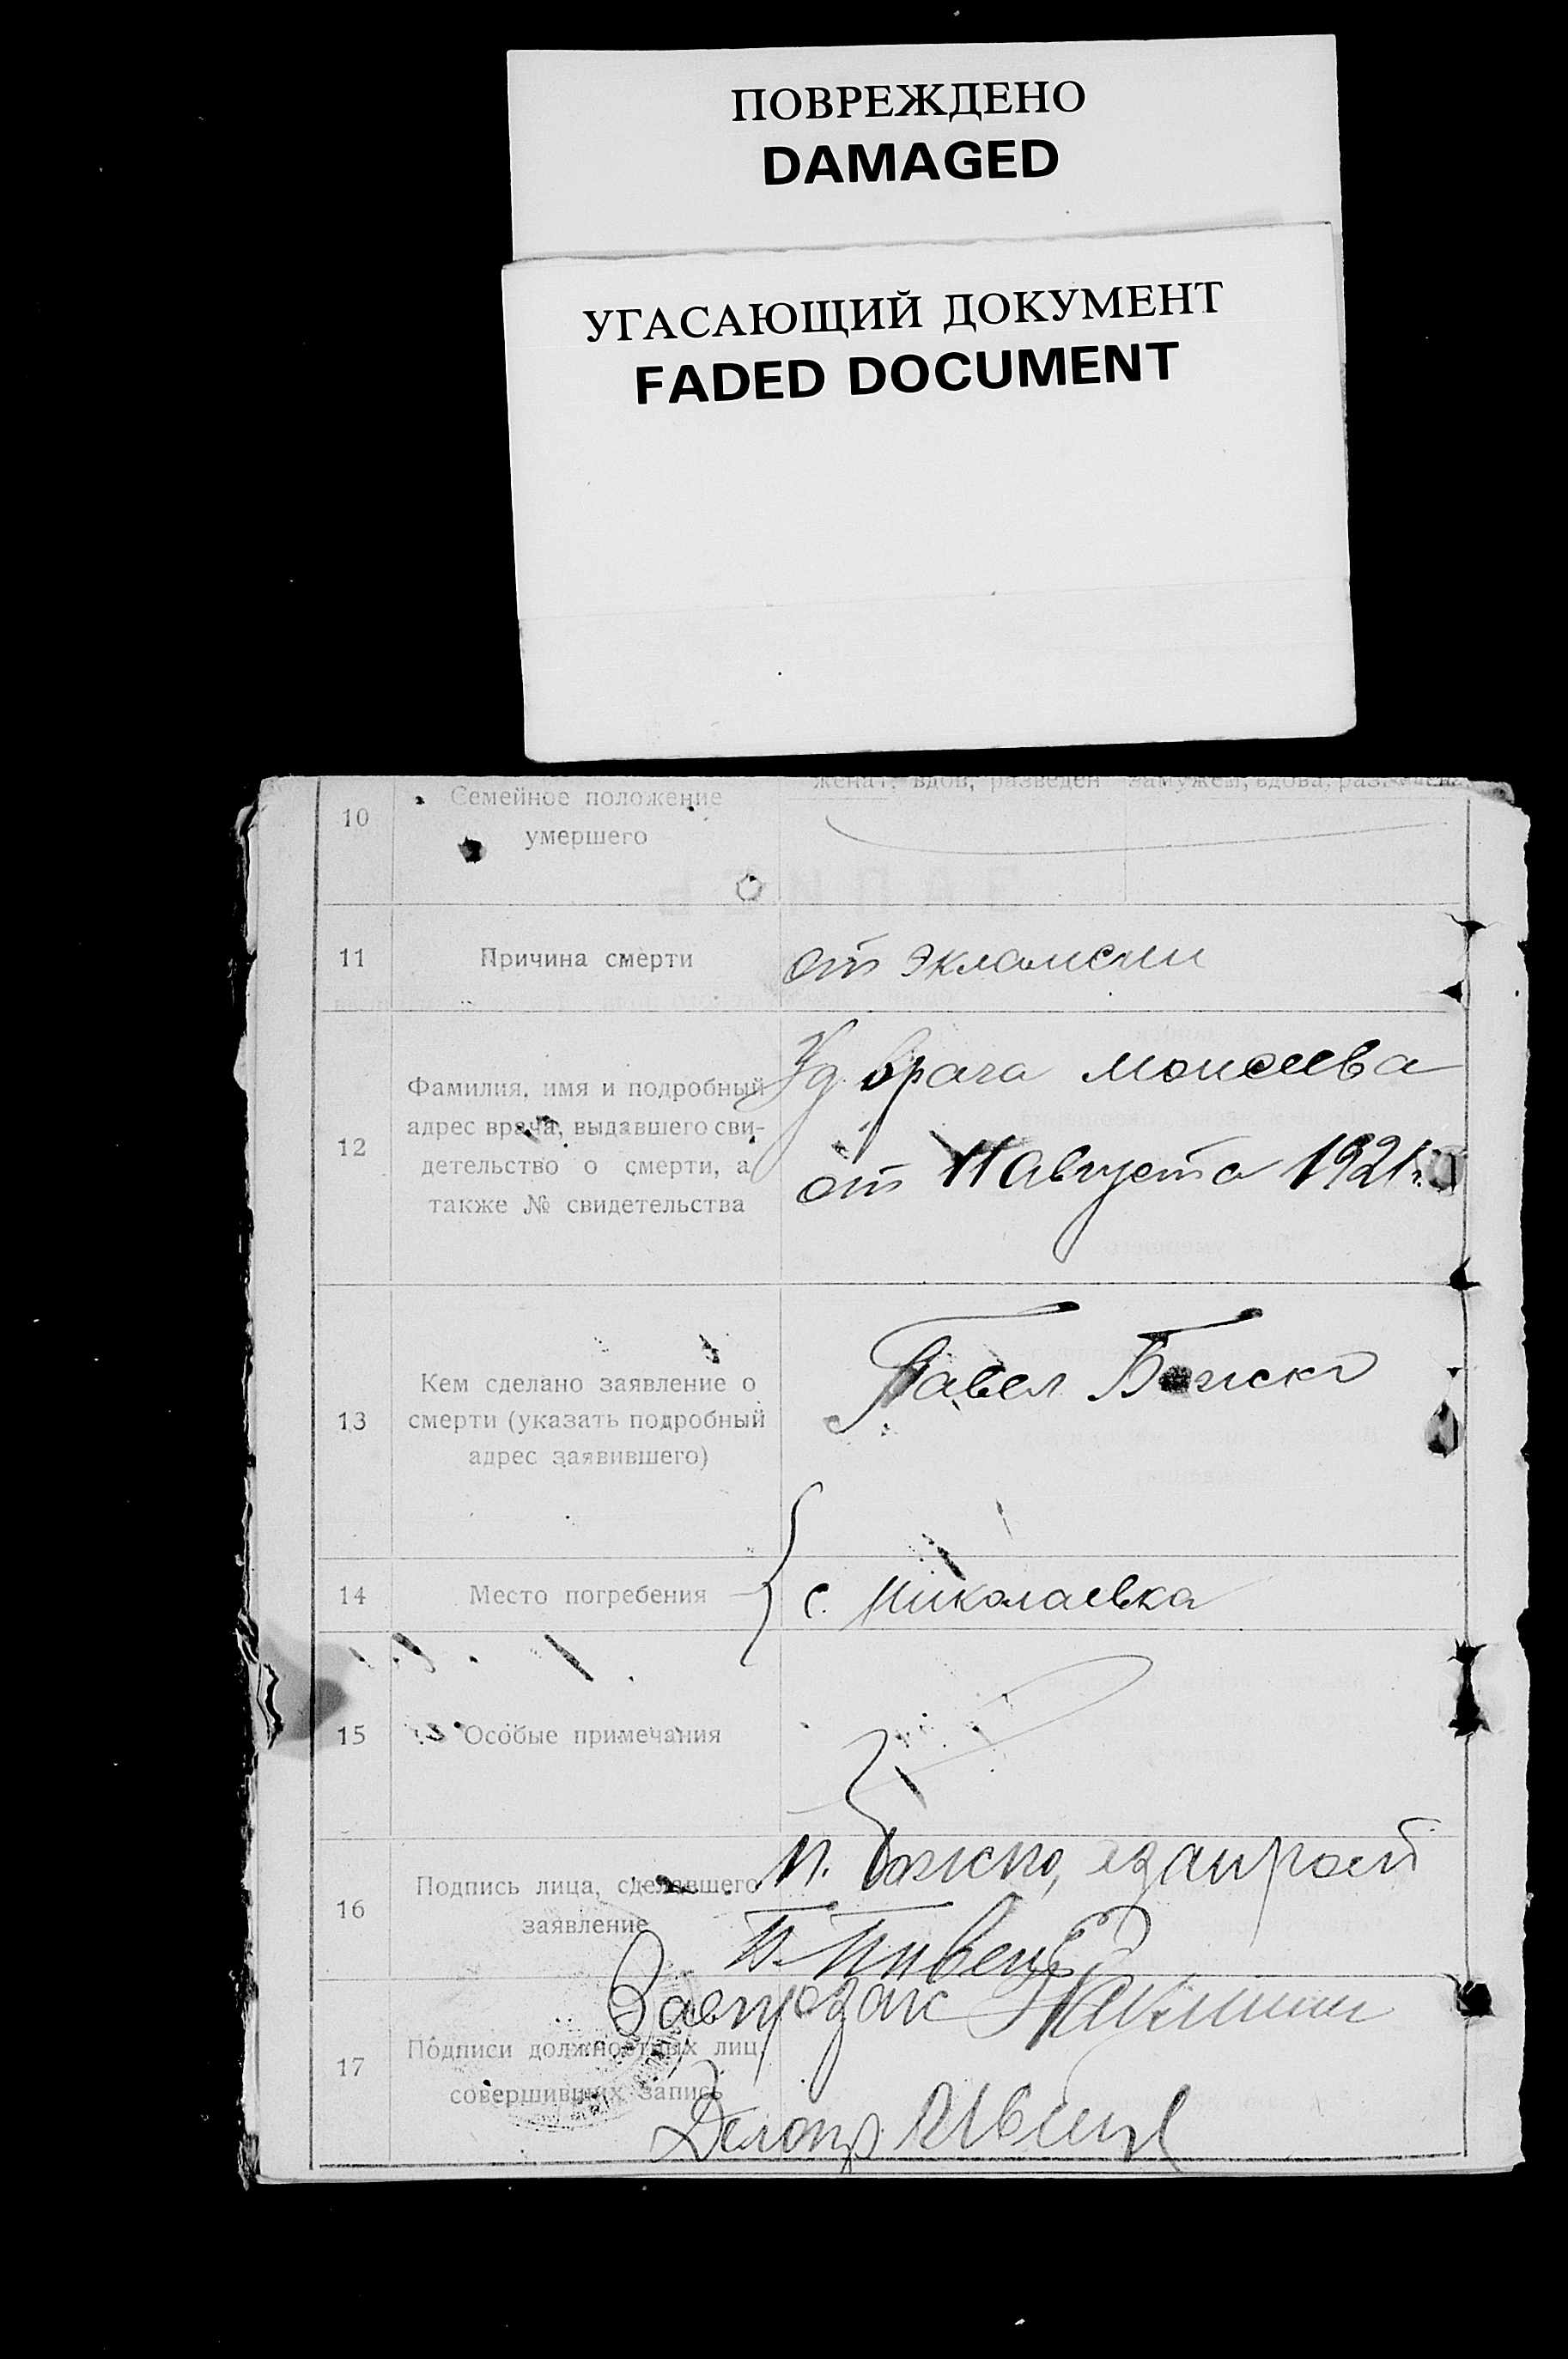 ПОВРЕЖДЕНО
DAMAGED
УГАСАЮЩИЙ ДОКУМЕНТ
FADED DOCUMENT
10
Семейное положение
умершего
женат, вдов, разведен
замужем, вдова,
11
Причина смерти
от эклампсии
12
Фамилия, имя и подробный
адрес врача, выдавшего сви-
детельство о смерти, а
также № свидетельства
Уд врача Моисеева
от 11 августа 1921 г.
13
Кем сделано заявление о
смерти (указать подробный
адрес заявившего)
Павел Божко
14
Место погребения
с. Николаевка
15
Особые примечания
16
Подпись лица, сделавшего
заявление
П. Божко,
17
Подписи должностных лиц,
совершивших запись
Завподзагс
Делопр